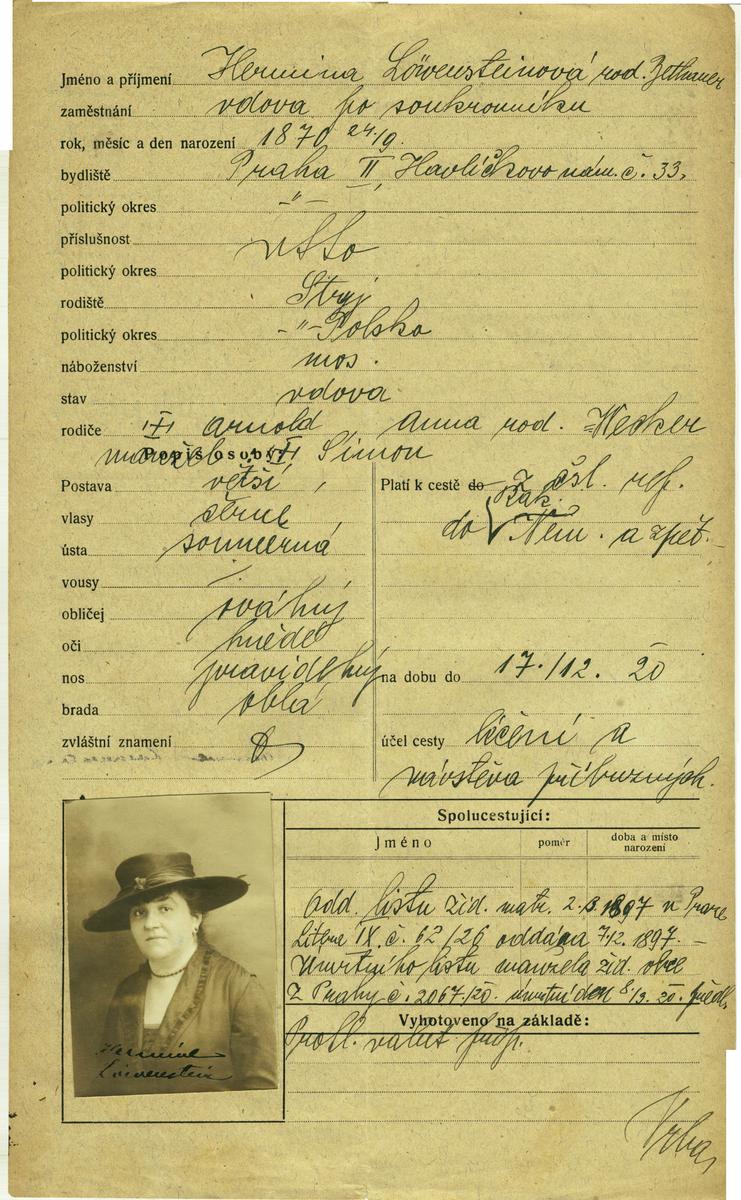 Jméno a příjmení Hermina Löwensteinová rod. Bethauer
zaměstnání vdova po soukromníku
rok, měsíc a den narození 1870 24/9.
bydliště Praha II, Havlíčkovo nám. č. 33.
politický okres -"-
příslušnost
politický okres
rodiště Stryj
politický okres -"- Polsko
náboženství mos.
stav vdova
rodiče Arnold, Anna rod. Wecker
manžel Simon
Popis osoby:
Postava větší,
vlasy černé
ústa souměrná
vousy /.
obličej oválný
oči hnědé
nos pravidelný
brada oblá
zvláštní znamení
Platí k cestě do z čsl. rep.
do Rak.
Něm. a zpět.
na dobu do 17./12. 20
účel cesty léčení a
návštěva příbuzných.
Spolucestující:
Jméno poměr doba a místo narození
Odd. listu žid. matr. 2.8.1897 v Praze
Litera IX. č. 62/26 oddána 7/2. 1897. -
Úmrtního listu manžela žid. obce
Z Prahy č. 2067/20. úmrtní den 8./3. 20. předl.
Vyhotoveno na základě:
Hermine
Löwenstein
Vrba